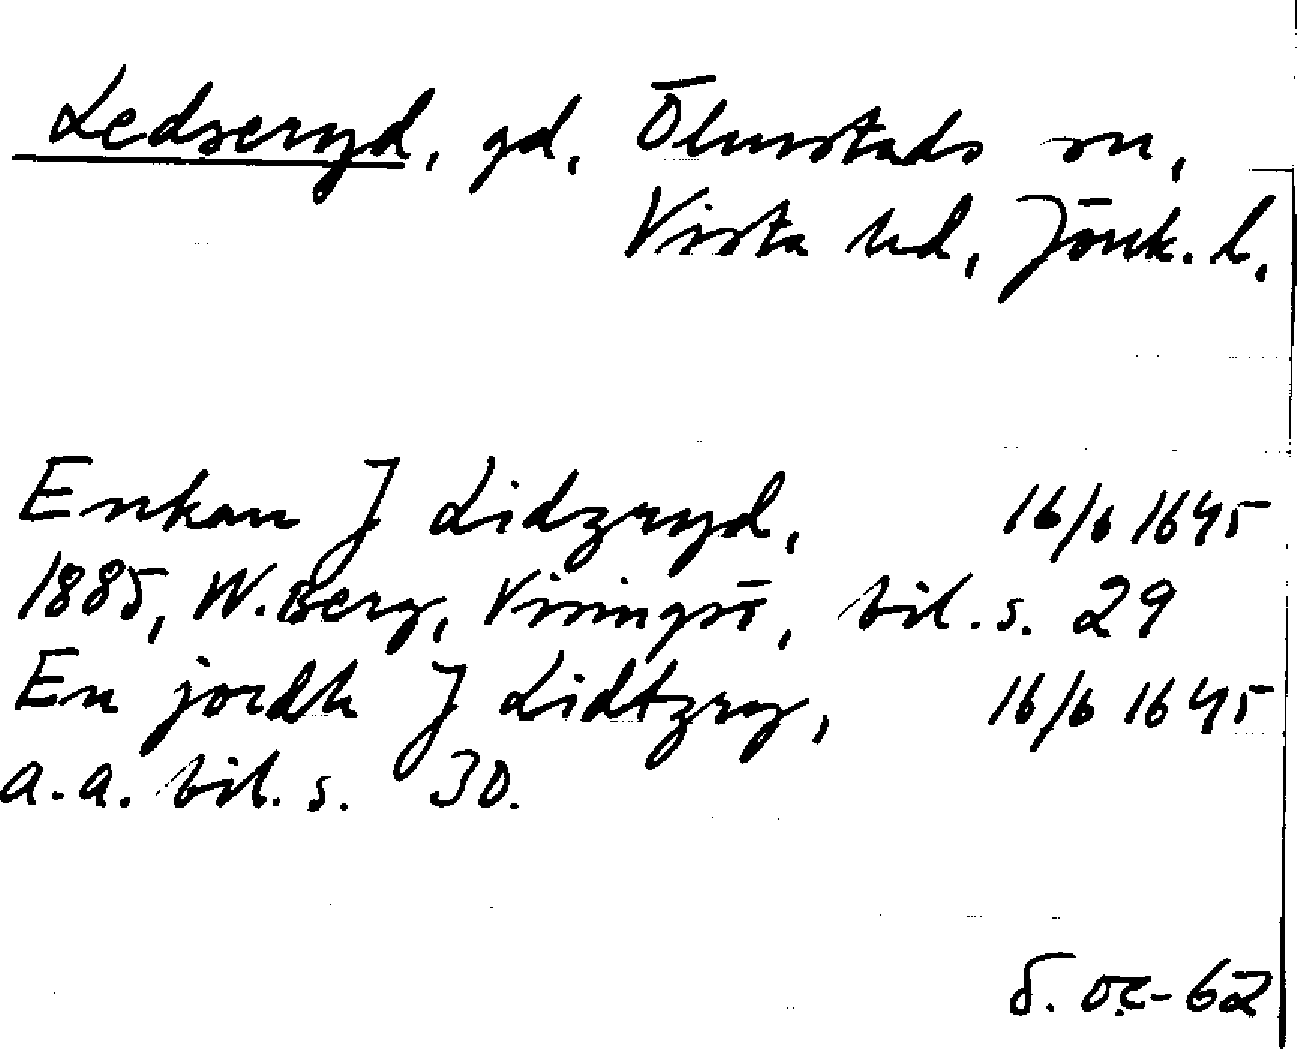 Ledseryd, gd, Ölmstads sn,
Vista hd, Jönk. l.
Enkan J Lidzryd, 16/6 1645
1885, W. Berg, Visingsö, bil. s. 29
En jordh J Lidtzry, 16/6 1645
a.a. bil. s. 30.
62